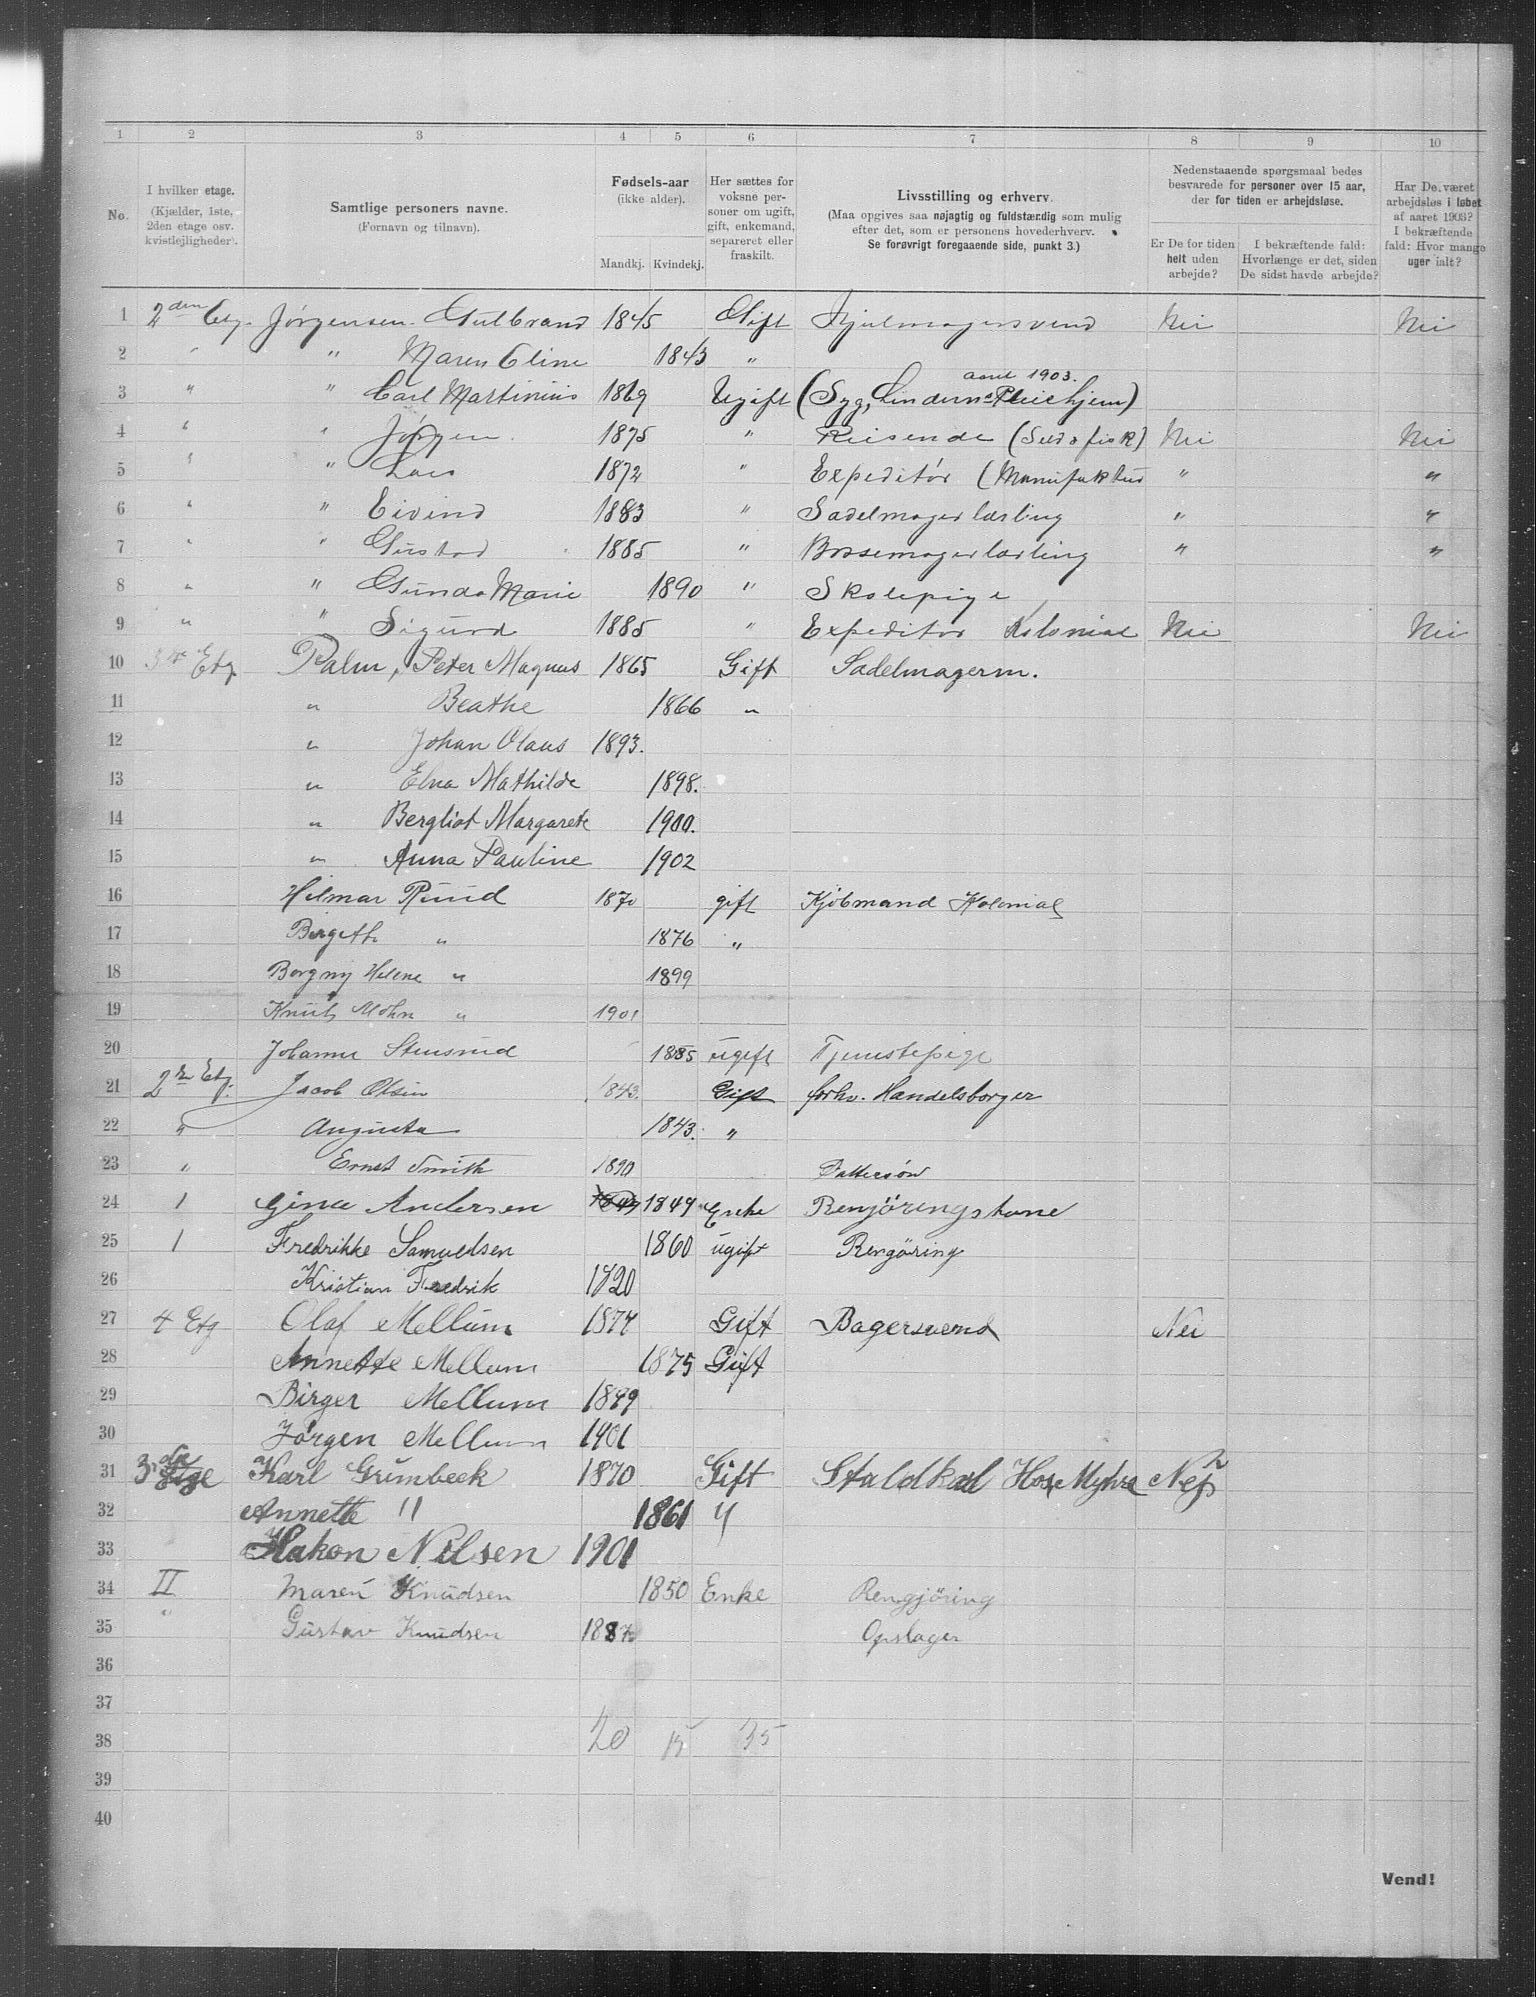 1 2 3 4 5 6 7 8 9 10
No.
I hvilken etage. (Kjælder, 1ste, 2den etage osv. kvistlejligheder).
Samtlige personers navne. (Fornavn og tilnavn).
Fødsels-aar (ikke alder).
Mandkj. Kvindekj.
Her sættes for voksne personer om ugift, gift, enkemand, separeret eller fraskilt.
Livsstilling og erhverv.
(Maa opgives saa nøjagtig og fuldstændig som mulig efter det, som er personens hovederhverv.
Se forøvrigt foregaaende side, punkt 3.)
Nedenstaaende spørgsmaal bedes besvarede for personer over 15 aar, der for tiden er arbejdsløse.
Er De for tiden helt uden arbejde?
I bekræftende fald: Hvorlænge er det, siden De sidst havde arbejde?
Har De været arbejdsløs i løbet af aaret 1903? I bekræftende fald: Hvor mange uger ialt?
1 2den Etg. Jørgensen Gulbrand 1845 Gift Hjulmagersvend Nei Nei
2 " " Maren Eline 1843 "
aaret 1903.
3 " " Carl Martinius 1869 Ugift (Syg, Linderns Pleiehjem)
4 " " Jörgen 1875 " Reisende (Sild & fisk) Nei Nei
5 " " Lars 1872 " Expeditör (Manufaktur " "
6 " " Eivind 1883 " Sadelmagerlærling " "
7 " " Gustav 1885 " Børsemagerlærling " "
8 " " Gunda Marie 1890 " Skolepige
9 " " Sigurd 1885 " Expeditör Kolonial Nei Nei
10 3die Etg. Palm, Peter Magnus 1865 Gift Sadelmagerm.
11 " Beathe 1866 "
12 " Johan Olaus 1893.
13 " Elna Mathilde 1898.
14 " Bergliot Margarete 1900.
15 " Anna Pauline 1902
16 Hilmar Ruud 1870 gift Kjöbmand Kolonial
17 Birgeth " 1876 "
18 Borgny Helene " 1899
19 Knut Mohn " 1901
20 Johanne Stensrud 1885 ugift Tjenestepige
21 2den Etg. Jacob Olsen 1843. Gift forhv. Handelsborger
22 " Augusta 1843. "
23 " Ernst Smith 1890
24 1 Gina Andersen 1849 Enke Renjöringskone
25 1 Fredrikke Samuelsen 1860 ugift Rengöring
26 Kristian Fredrik
27 4 Etg Olaf Mellum 1877 Gift Bagersvend Nei
28 Annette Mellum 1875 Gift
29 Birger Mellum 1899
30 Jørgen Mellum 1901
31 3die Karl Grimbeck 1870 Gift Staldkarl Hos Myhre Nej
32 Annette " 1861 "
33 Hakon Nilsen 1901
34 II Maren Knudsen 1850 Enke Rengjöring
35 " Gustav Knudsen 1887 Opslager
36
37
38 20 15 35
39
40
Vend!